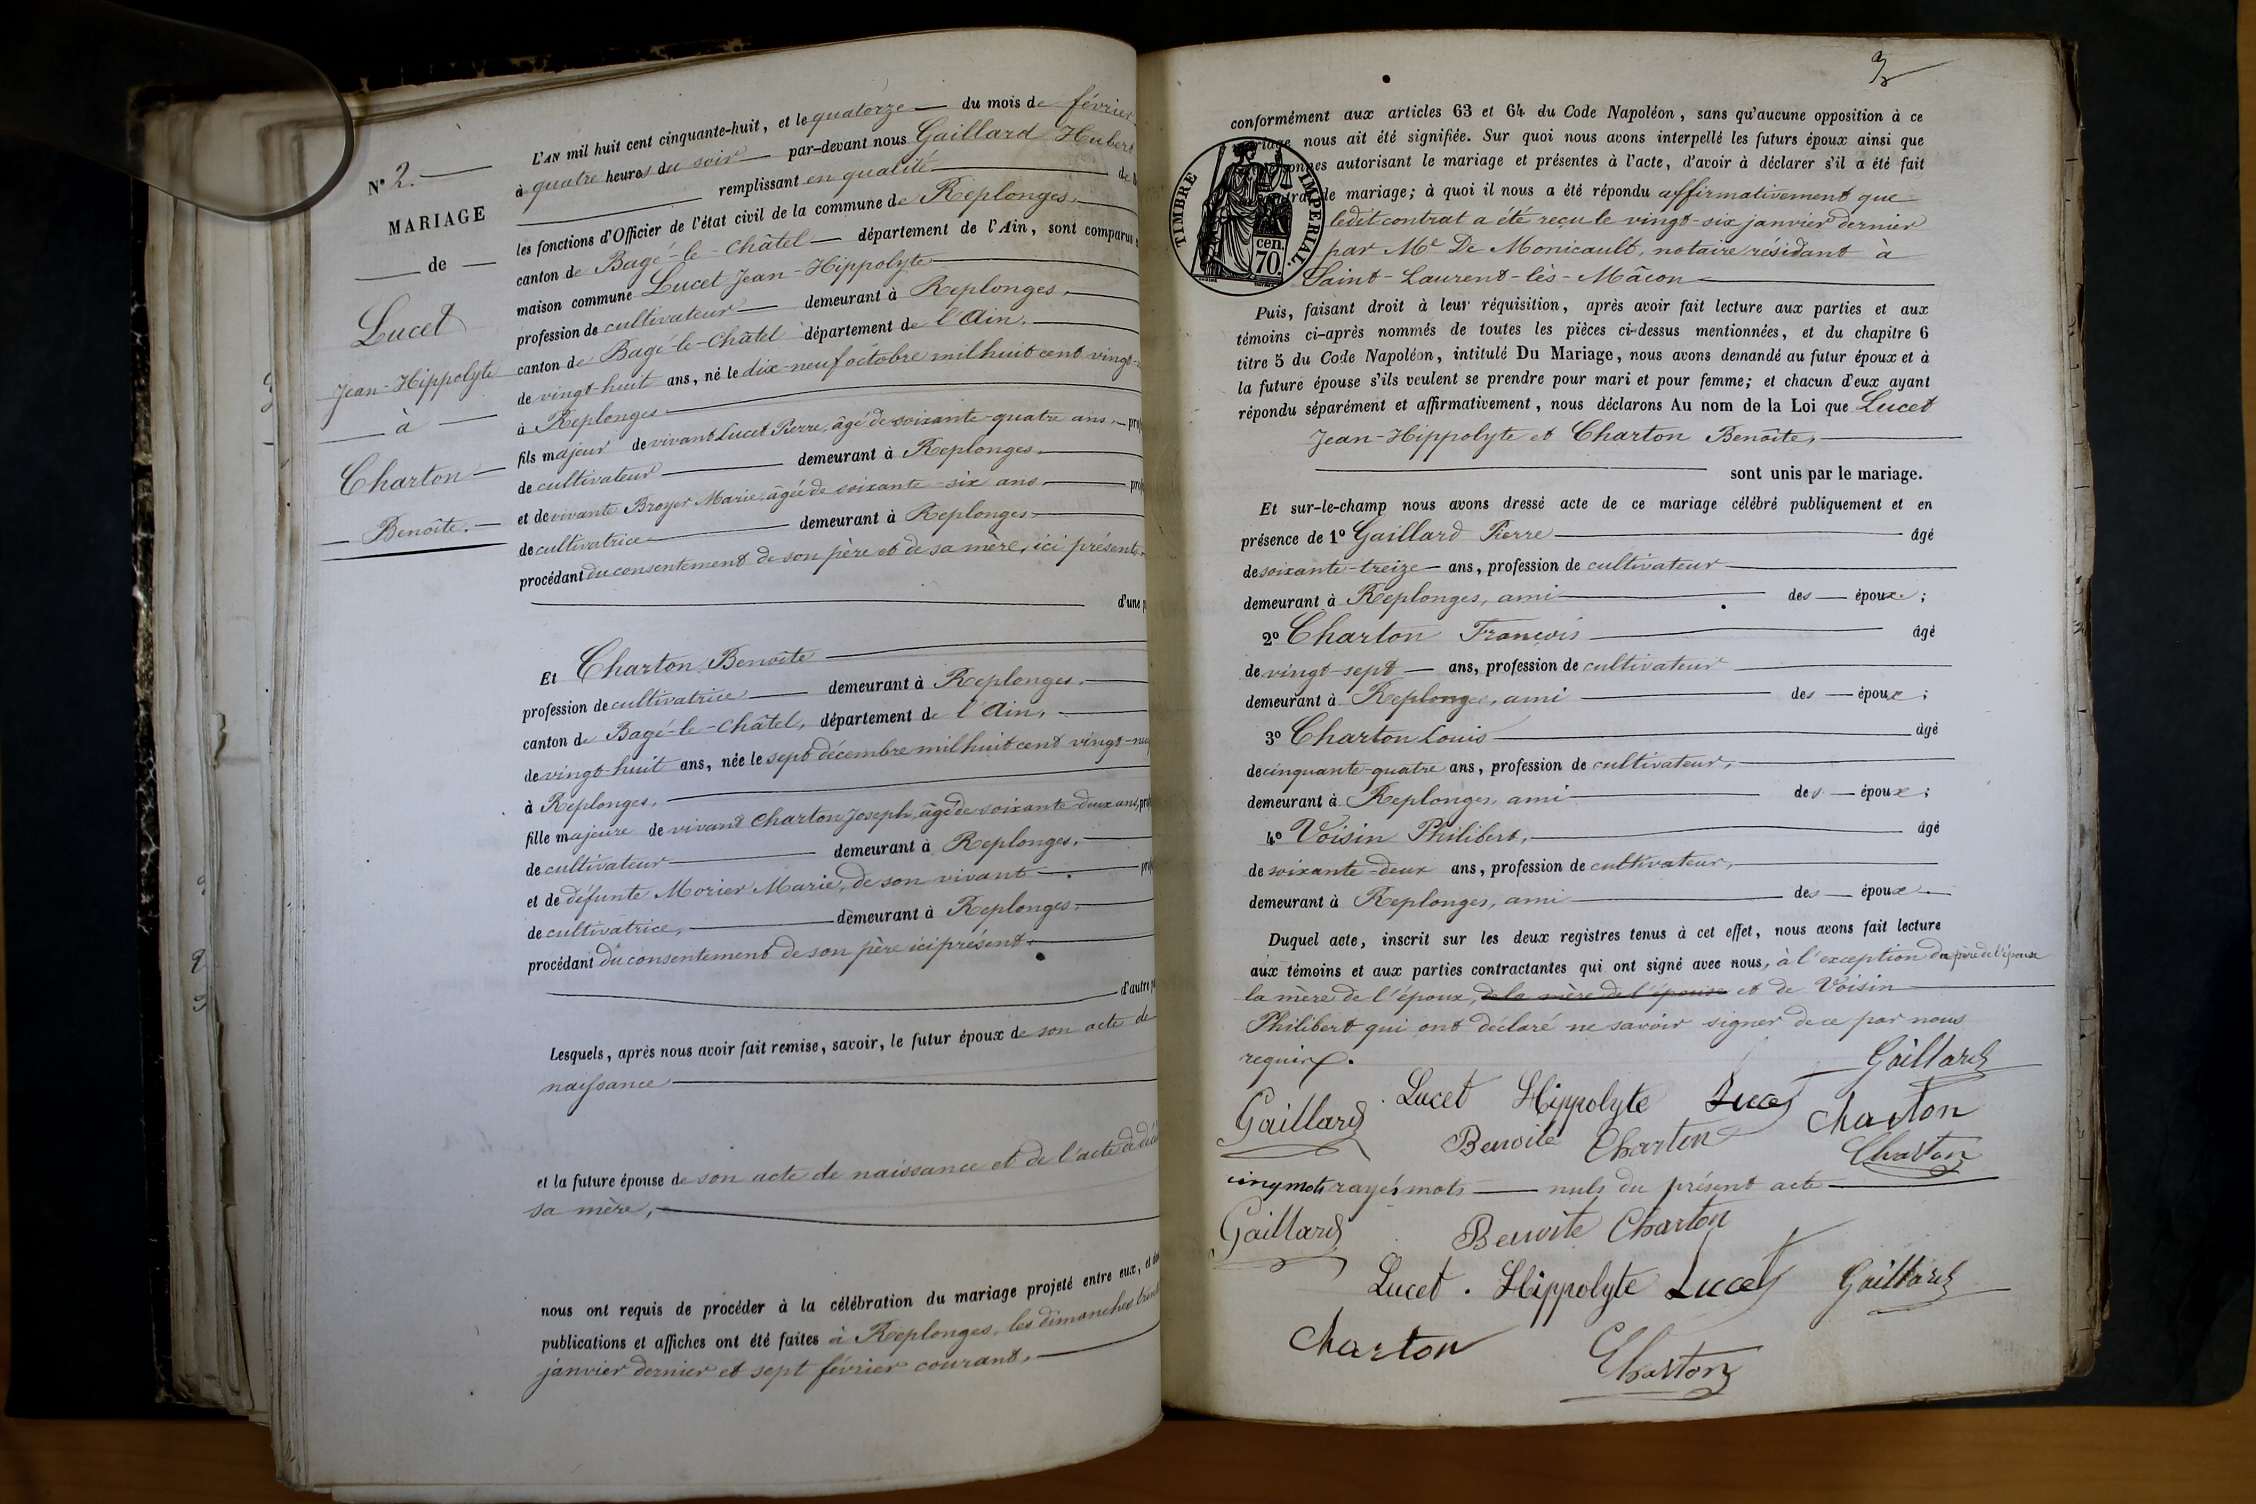 N° 2.
MARIAGE
de
Lucet
Jean-Hippolyte
à
Charton
Benoîte.
L'AN mil huit cent cinquante-huit, et le quatorze du mois de février
à quatre heures du soir par-devant nous Gaillard Hubert
remplissant en qualité
les fonctions d'Officier de l'état civil de la commune de Replonges,
canton de Bagé-le-Châtel département de l'Ain, sont comparus
maison commune Lucet Jean-Hippolyte
profession de cultivateur demeurant à Replonges,
canton de Bagé-le-Châtel département de l'Ain.
de vingt-huit ans, né le dix-neuf octobre mil huit cent vingt-
à Replonges
fils majeur de vivant Lucet Pierre, âgé de soixante-quatre ans,
de cultivateur demeurant à Replonges.
et de vivante Broyer Marie âgée de soixante-six ans
de cultivatrice demeurant à Replonges
procédant du consentement de son père et de sa mère, ici présents
d'une
Et Charton Benoîte
profession de cultivatrice demeurant à Replonges.
canton de Bagé-le-Châtel, département de l'Ain,
de vingt-huit ans, née le sept décembre mil huit cent vingt-neuf
à Replonges,
fille majeure de vivant Charton Joseph, âgé de soixante deux ans,
de cultivateur demeurant à Replonges,
et de défunte Morier Marie, de son vivant
de cultivatrice, demeurant à Replonges.
procédant du consentement de son père ici présent.
d'autre
Lesquels, après nous avoir fait remise, savoir, le futur époux de son acte de
naissance
et la future épouse de son acte de naissance et de l'acte de
sa mère,
nous ont requis de procéder à la célébration du mariage projeté entre eux, et
publications et affiches ont été faites à Replonges, les dimanches
janvier dernier et sept février courant,
3
conformément aux articles 63 et 64 du Code Napoléon, sans qu'aucune opposition à ce
mariage nous ait été signifiée. Sur quoi nous avons interpellé les futurs époux ainsi que
autorisant le mariage et présentes à l'acte, d'avoir à déclarer s'il a été fait
de mariage; à quoi il nous a été répondu affirmativement que
ledit contrat a été reçu le vingt-six janvier dernier
par Me De Monicault, notaire résidant à
Saint-Laurent-lès-Mâcon
TIMBRE IMPÉRIAL.
cen.
70.
Puis, faisant droit à leur réquisition, après avoir fait lecture aux parties et aux
témoins ci-après nommés de toutes les pièces ci-dessus mentionnées, et du chapitre 6
titre 5 du Code Napoléon, intitulé Du Mariage, nous avons demandé au futur époux et à
la future épouse s'ils veulent se prendre pour mari et pour femme; et chacun d'eux ayant
répondu séparément et affirmativement, nous déclarons Au nom de la Loi que Lucet
Jean-Hippolyte et Charton Benoîte,
sont unis par le mariage.
Et sur-le-champ nous avons dressé acte de ce mariage célébré publiquement et en
présence de 1° Gaillard Pierre âgé
de soixante-treize ans, profession de cultivateur
demeurant à Replonges, ami des époux;
2° Charton François âgé
de vingt-sept ans, profession de cultivateur
demeurant à Replonges, ami des époux;
3° Charton Louis âgé
de cinquante-quatre ans, profession de cultivateur,
demeurant à Replonges, ami des époux;
4° Voisin Philibert, âgé
de soixante-deux ans, profession de cultivateur,
demeurant à Replonges, ami des époux
Duquel acte, inscrit sur les deux registres tenus à cet effet, nous avons fait lecture
aux témoins et aux parties contractantes qui ont signé avec nous, à l'exception du père de l'épouse
la mère de l'époux, de la mère de l'épouse et de Voisin
Philibert qui ont déclaré ne savoir signer de ce par nous
requis.
Gaillard
Lucet Hippolyte Lucet
Gaillard Charton
Benoite Charton
Charton
cinq mots rayés mots nuls du présent acte
Gaillard Benoite Charton
Lucet. Hippolyte Lucet Gaillard
Charton
Charton